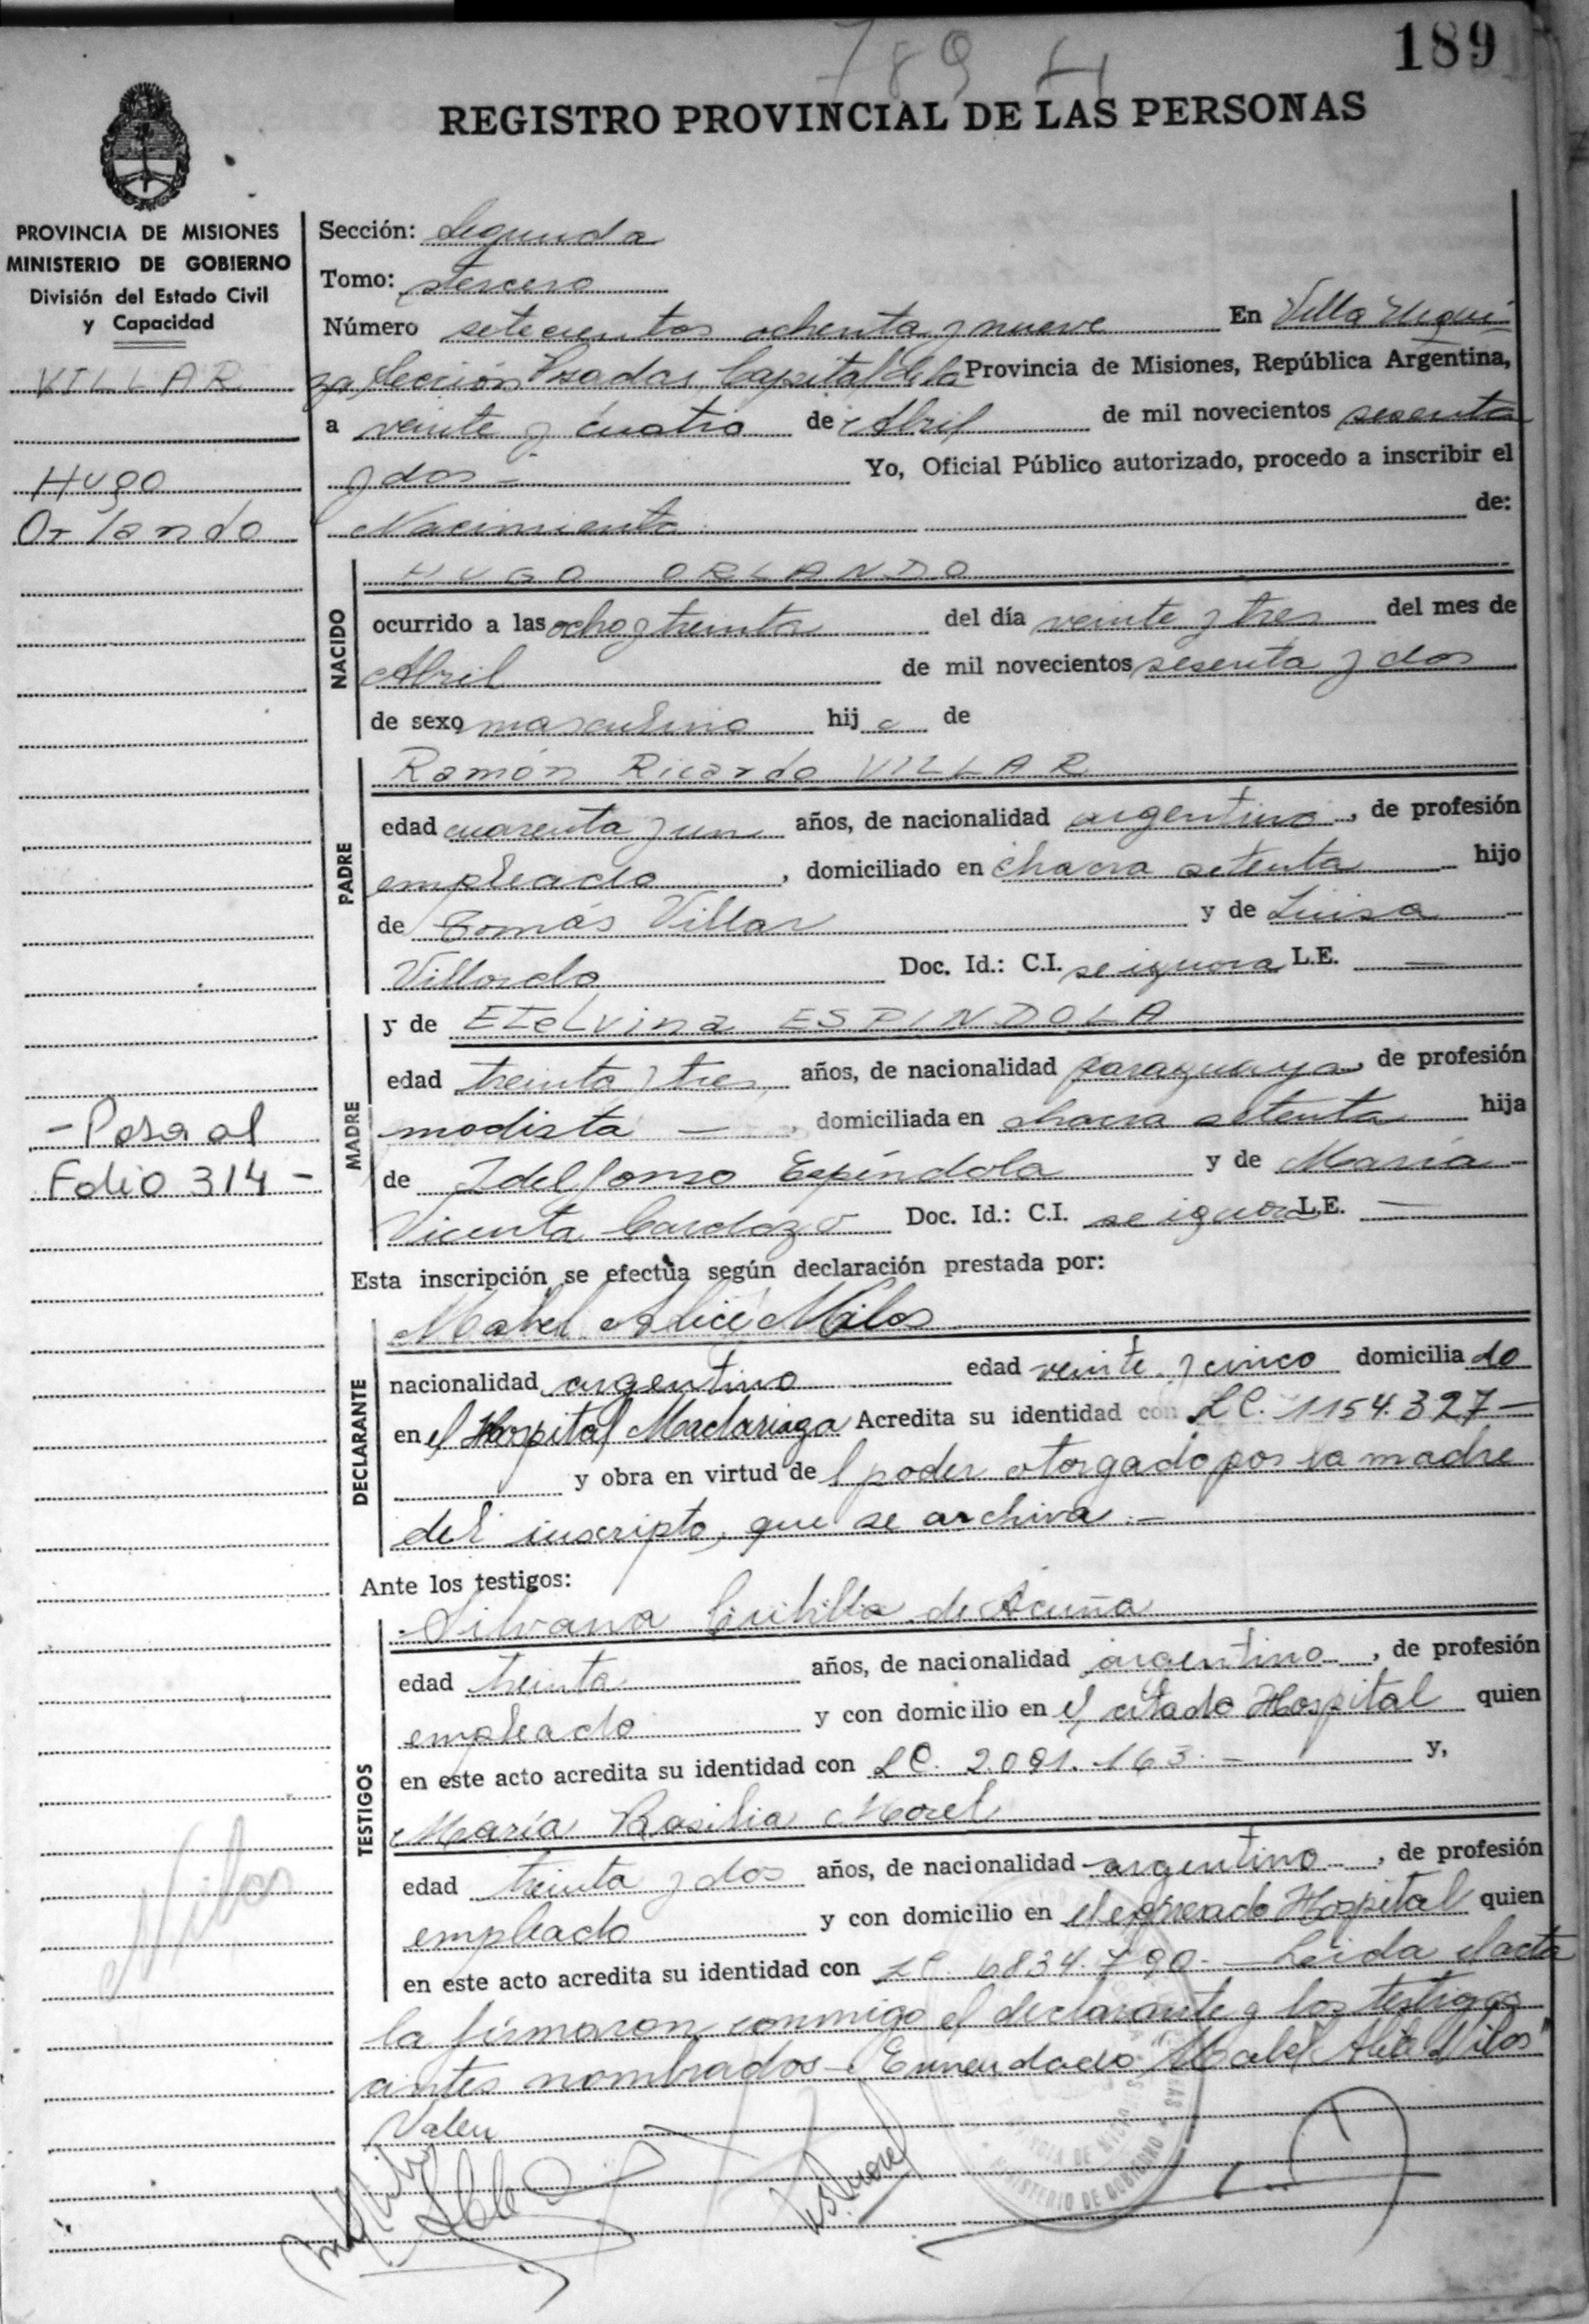 189
789
REGISTRO PROVINCIAL DE LAS PERSONAS
PROVINCIA DE MISIONES
MINISTERIO DE GOBIERNO
División del Estado Civil
y Capacidad
VILLAR
Hugo
Orlando
- Pasa al
Folio 314 -
Nilos
Sección: Segunda
Tomo: tercero
Número setecientos ochenta y nueve En Villa Urqui
za Sección Posadas, Capital de la Provincia de Misiones, República Argentina,
a veinte y cuatro de Abril de mil novecientos sesenta
y dos - Yo, Oficial Público autorizado, procedo a inscribir el
Nacimiento de:
NACIDO
HUGO ORLANDO
ocurrido a las ocho y treinta del día veinte y tres del mes de
Abril de mil novecientos sesenta y dos
de sexo masculino hijo de
PADRE
Ramón Ricardo VILLAR
edad cuarenta y un años, de nacionalidad argentino, de profesión
empleado, domiciliado en chacra setenta hijo
de Tomás Villar y de Luisa
Villordo Doc. Id.: C.I. se ignora L.E. —
MADRE
y de Etelvina ESPINDOLA
edad treinta y tres años, de nacionalidad paraguaya, de profesión
modista —, domiciliada en chacra setenta hija
de Idelfonso Espíndola y de María
Vicenta Cardozo Doc. Id.: C.I. se ignora L.E. —
Esta inscripción se efectúa según declaración prestada por:
DECLARANTE
Mabel Alice Nilos
nacionalidad argentino edad veinte y cinco domiciliado
en el Hospital Madariaga Acredita su identidad con LC. 1154.327 —
y obra en virtud del poder otorgado por la madre
del inscripto, que se archiva. —
Ante los testigos:
TESTIGOS
Silvana de Acuña
edad treinta años, de nacionalidad argentino, de profesión
empleado y con domicilio en el citado Hospital quien
en este acto acredita su identidad con LC. 2.091.163. — y,
María Basilia Morel
edad treinta y dos años, de nacionalidad argentino, de profesión
empleado y con domicilio en el expresado Hospital quien
en este acto acredita su identidad con LC. 6834.790. — Leida el acta
la firmaron conmigo el declarante y los testigos
antes nombrados - Enmendado "Mabel Alice Nilos"
Valen
MINISTERIO DE GOBIERNO